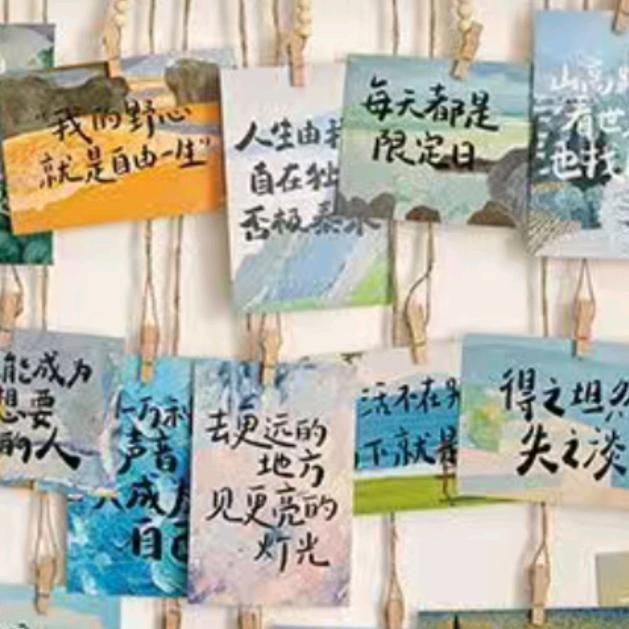 "我的野心
就是自由一生"
人生由
自在
否极泰来
每天都是
限定日
山高
看世
池找
能成为
想要
的人
万种
声音
成为
自己
去更远的
地方
见更亮的
灯光
活不在别
下就是
得之坦然
失之淡